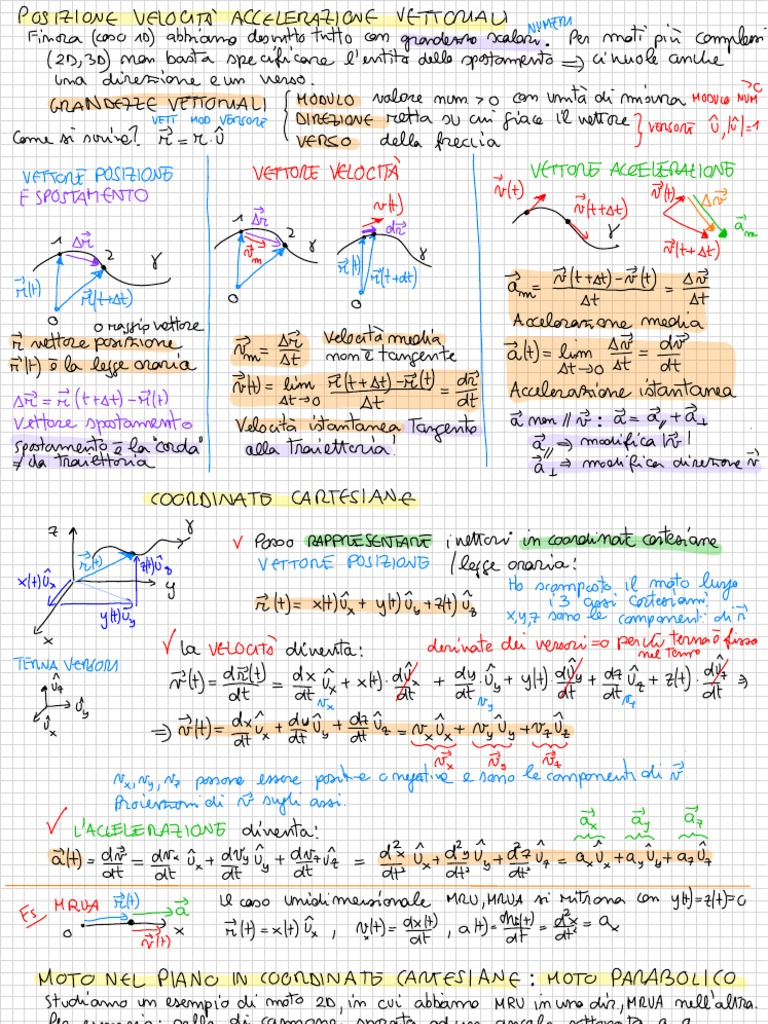 POSIZIONE VELOCITÀ ACCELERAZIONE VETTORIALI
NUMERI
Finora (caso 1D) abbiamo descritto tutto con grandezze scalari. Per moti più complessi
(2D,3D) non basta specificare l'entità dello spostamento ⟹ ci vuole anche
una direzione e un verso.
GRANDEZZE VETTORIALI
MODULO valore num >0 con unità di misura
MODULO NUM
VETT MOD VERSORE
DIREZIONE retta su cui giace il vettore
VERSORE û, |û|=1
Come si scrive? r⃗ = r·û
VERSO della freccia
VETTORE POSIZIONE
E SPOSTAMENTO
1 Δr⃗ 2 γ
r⃗(t) r⃗(t+Δt)
O
o raggio vettore
r⃗ vettore posizione
r⃗(t) è la legge oraria
Δr⃗ = r⃗(t+Δt) - r⃗(t)
Vettore spostamento
spostamento è la "corda"
≠ da traiettoria
VETTORE VELOCITÀ
1 Δr⃗ 2 γ v⃗m
O
v⃗(t) dr⃗ γ
r⃗(t) r⃗(t+dt)
O
v⃗m = Δr⃗/Δt Velocità media
non è tangente
v⃗(t) = lim Δt→0 r⃗(t+Δt)-r⃗(t)/Δt = dr⃗/dt
Velocità istantanea Tangente
alla Traiettoria!
VETTORE ACCELERAZIONE
v⃗(t) v⃗(t+Δt) γ
v⃗(t) Δv⃗ a⃗m
v⃗(t+Δt)
a⃗m = v⃗(t+Δt)-v⃗(t)/Δt = Δv⃗/Δt
Accelerazione media
a⃗(t) = lim Δt→0 Δv⃗/Δt = dv⃗/dt
Accelerazione istantanea
a⃗ non // v⃗ : a⃗ = a⃗// + a⃗⊥
a⃗// ⟹ modifica |v⃗|
a⃗⊥ ⟹ modifica direzione v⃗
COORDINATE CARTESIANE
z γ
r⃗(t) z(t)ûz
x(t)ûx y
y(t)ûy
x
✓ Posso RAPPRESENTARE i vettori in coordinate cartesiane
VETTORE POSIZIONE / legge oraria:
r⃗(t) = x(t)ûx + y(t)ûy + z(t)ûz
Ho scomposto il moto lungo
i 3 assi cartesiani
x,y,z sono le componenti di r⃗
✓ La VELOCITÀ diventa: derivate dei versori =0 perché terna è fissa
nel tempo
TERNA VERSORI
ûz
ûy
ûx
v⃗(t) = dr⃗(t)/dt = dx/dt ûx + x(t)·dûx/dt + dy/dt·ûy + y(t) dûy/dt + dz/dt ûz + z(t)·dûz/dt ⟹
vx vy vz
⟹ v⃗(t) = dx/dt ûx + dy/dt ûy + dz/dt ûz = vxûx + vyûy + vzûz
v⃗x v⃗y v⃗z
vx, vy, vz possono essere positive o negative e sono le componenti di v⃗
Proiezioni di v⃗ sugli assi.
✓ L'ACCELERAZIONE diventa:
a⃗x a⃗y a⃗z
a⃗(t) = dv⃗/dt = dvx/dt ûx + dvy/dt ûy + dvz/dt ûz = d²x/dt² ûx + d²y/dt² ûy + d²z/dt² ûz = axûx + ayûy + azûz
Es MRUA r⃗(t) a⃗
O v⃗(t) x
Il caso unidimensionale MRU, MRUA si ritrova con y(t)=z(t)=0
r⃗(t) = x(t)ûx , vx(t) = dx(t)/dt , a(t) = dvx(t)/dt = d²x/dt² = ax
MOTO NEL PIANO IN COORDINATE CARTESIANE : MOTO PARABOLICO
Studiamo un esempio di moto 2D, in cui abbiamo MRU in una dir, MRUA nell'altra.